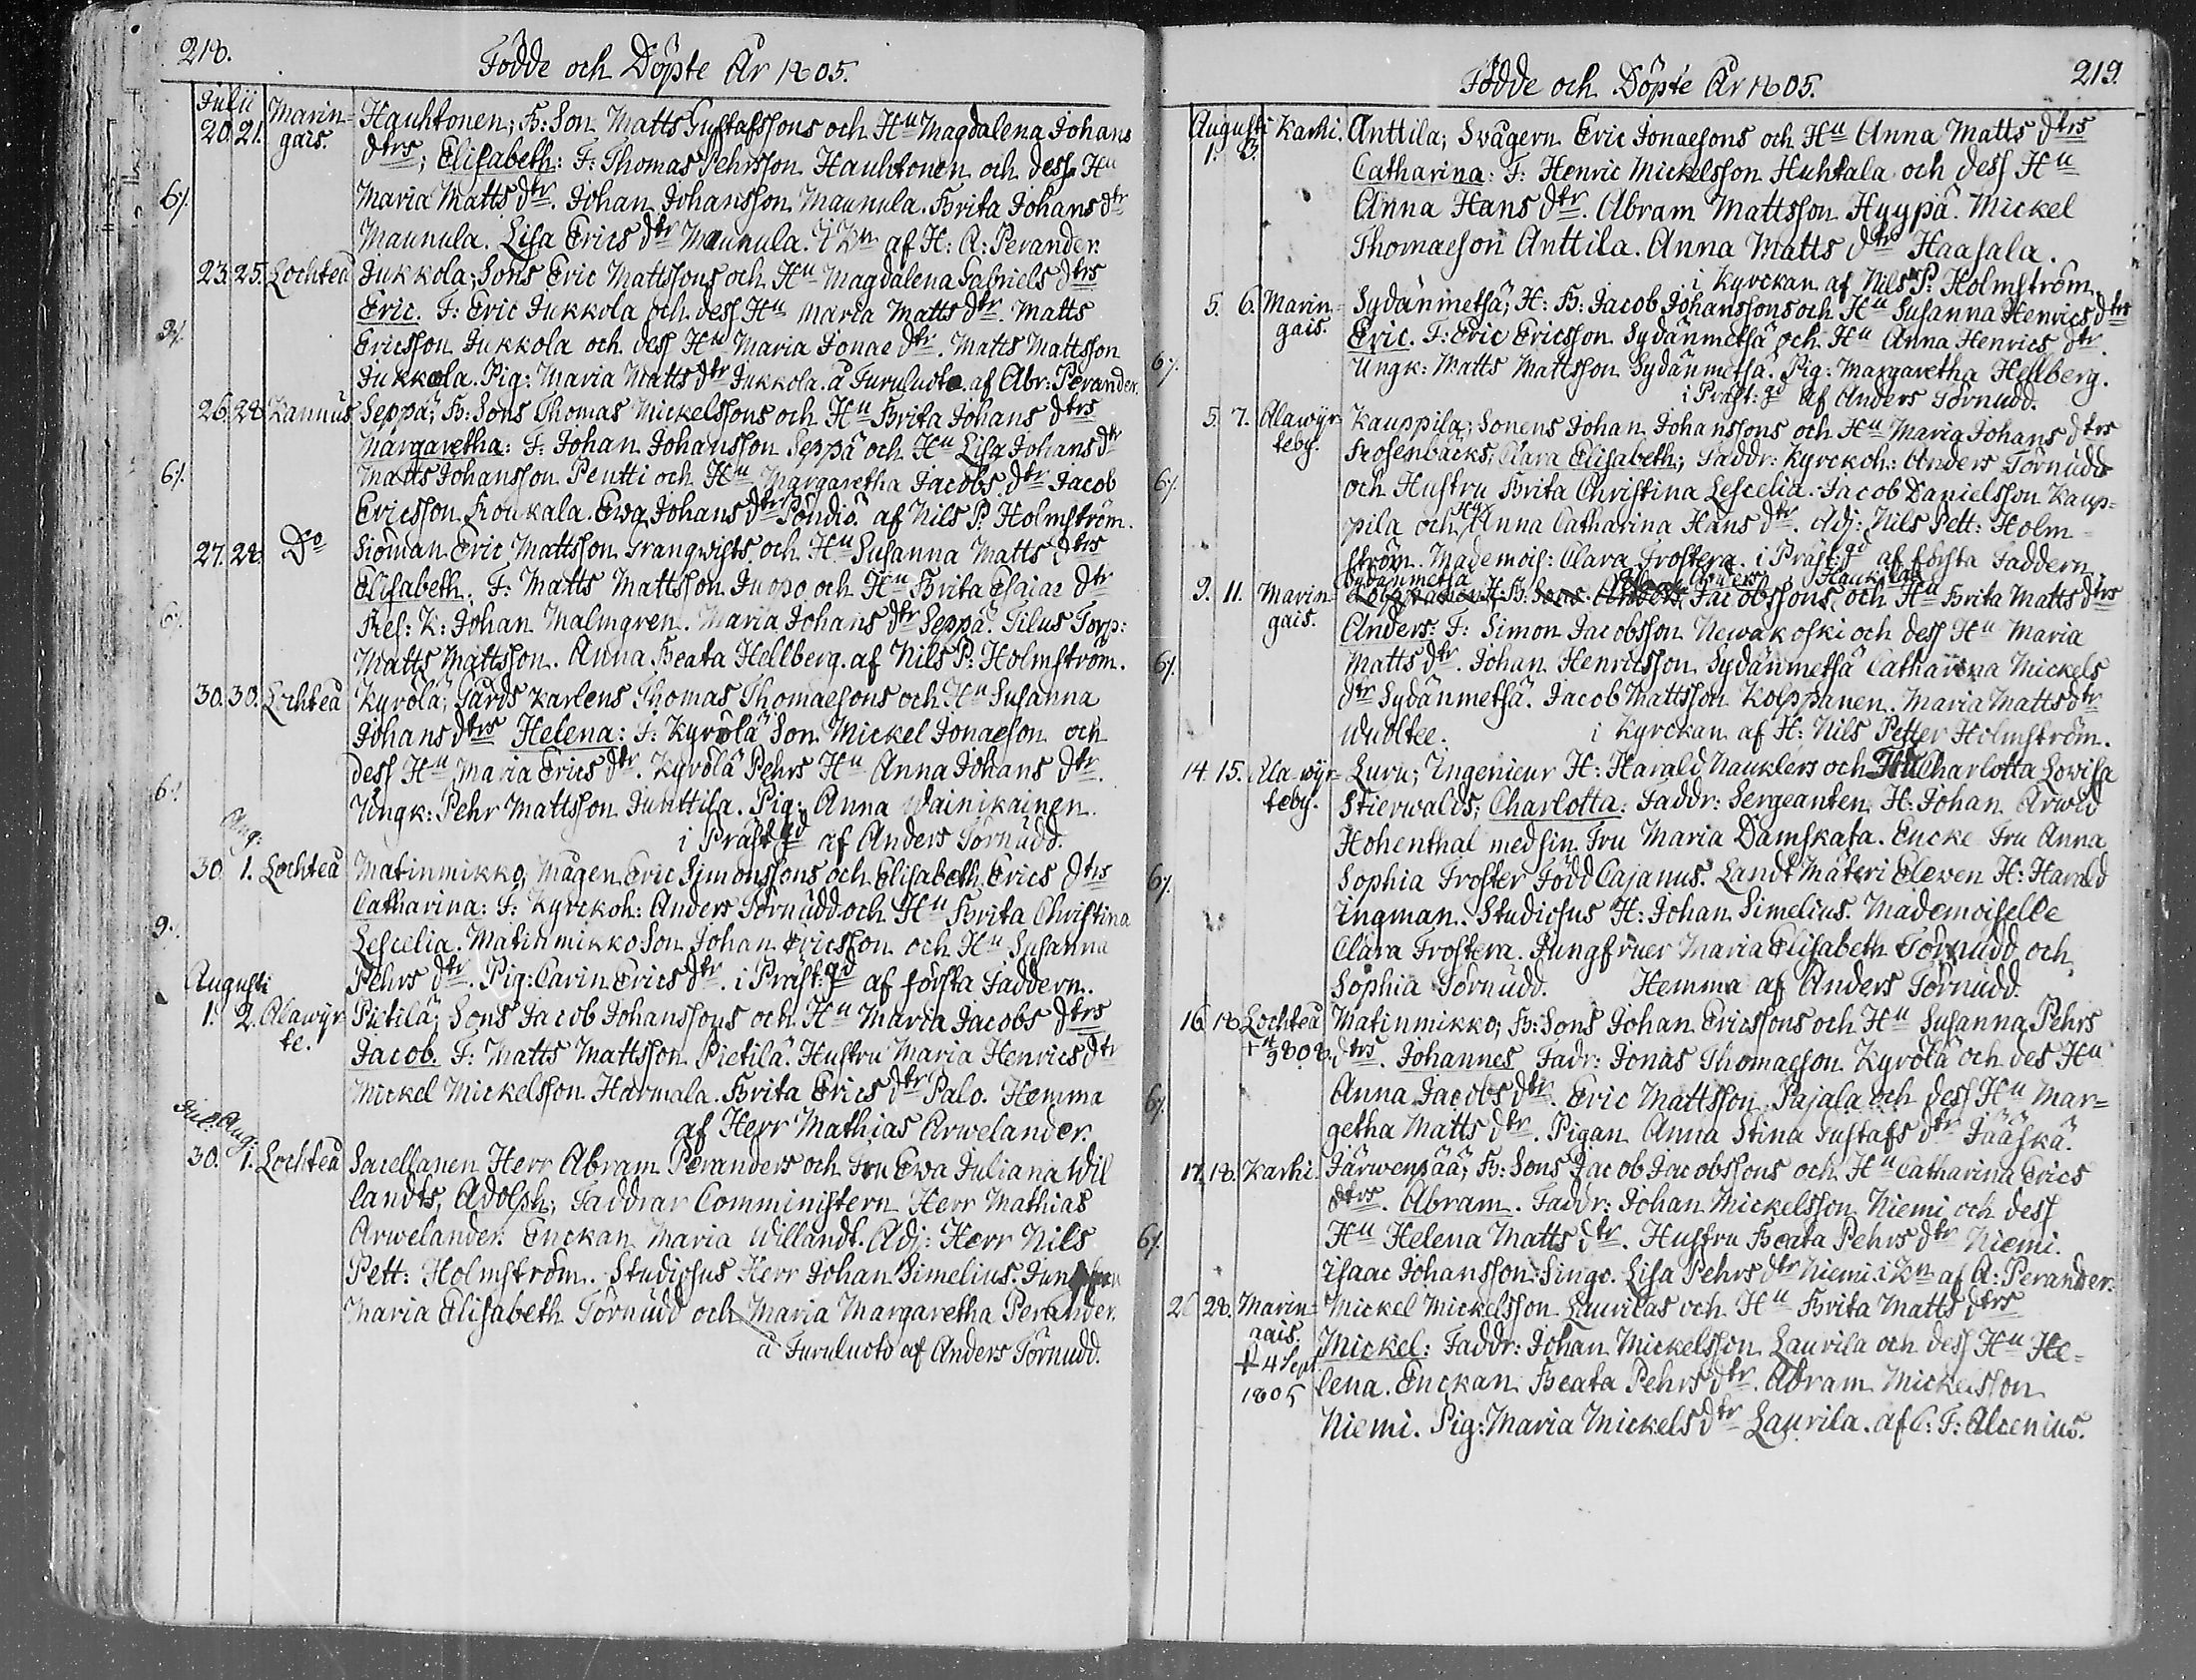 218.
Födde och Döpte År 1805.
Julii
20. 21. Marin= Hauhtonen; B: Son Matts Gustafssons och Hu Magdalena Johans
gais. dtrs; Elisabeth: F: Thomas Pehrsson Hauhtonen och dess Hu
6/. Maria Matts dtr. Johan Johansson Maunula. Brita Johans dtr
Maunula. Lisa Erics dtr Maunula. i Kn af H: A: Perander.
23. 25. Lochteå Jukkola; Sons Eric Mattssons och Hu Magdalena Gabriels dtrs
Eric. F: Eric Jukkola och dess Hu Maria Matts dtr. Matts
9/. Ericsson Jukkola och dess Hu Maria Jonae dtr. Matts Mattsson
Jukkola. Pig: Maria Matts dtr Jukkola. å Furuludto af Abr: Perander.
26. 28. Lannus Seppä; B: Sons Thomas Mickelssons och Hu Brita Johans dtrs
Margaretha: F: Johan Johansson Seppä och Hu Lisa Johans dr
6/. Matts Johansson Pentti och Hu Margaretha Jacobs dtr Jacob
Ericsson Roukala. Ewa Johans dtr Pöndiö. af Nils P. Holmström.
27. 28. Do Sioman Eric Mattsson Trangwists och Hu Susanna Matts dtrs
Elisabeth. F: Matts Mattsson Juopo och Hu Brita Esaiae dtr
6/. Res: K: Johan Malmgren. Maria Johans dtr Seppä. Tilus Torp:
Matts Mattsson. Anna Beata Hellberg. af Nils P: Holmström.
30. 30. Lochteå Kyrölä; Gårds Karlens Thomas Thomaesons och Hu Susanna
Johans dtrs Helena: F: Kyrölä Son Mickel Jonaeson och
dess Hu Maria Erics dtr. Kyrölä Pehrs Hu Anna Johans dtr.
6/. Ungk: Pehr Mattsson Junttila. Pig: Anna Wainikainen.
Aug: i Präst gd af Anders Törnudd.
30. 1. Lochteå Matinmikko, Mågen Eric Simonssons och Elisabeth Erics dtrs
Catharina: F: Kyrckoh: Anders Törnudd och Hu Brita Christina
9. Lescelia. Matinmikko Son Johan Ericsson och Hu Susanna
Augusti Pehrs dtr. Pig: Carin Erics dtr. i Präst: gd af första Faddern.
1. 2. Alawyr Pietilä; Sons Jacob Johanssons och Hu Maria Jacobs dtrs
te. Jacob. F: Matts Mattsson Pietilä. Hustru Maria Henrics dtr
Mickel Mickelsson Harmala. Brita Erics dtr Palo. Hemma
Jul: Aug: af Herr Mathias Arwelander.
30. 1. Lochteå Sacellanen Herr Abram Peranders och Fru Ewa Juliana Wil
landts, Adolph; Faddrar Comministern Herr Mathias
Arwelander. Enckan Maria Willandt. Adj: Herr Nils
Pett: Holmström. Studiosus Herr Johan Simelius.
Maria Elisabeth Törnudd och Maria Margaretha Perander.
å Furuludto af Anders Törnudd.
219.
Födde och Döpte År 1805.
Augusti Karhi. Anttila; Svågern Eric Jonaesons och Hu Anna Matts dtrs
1. 3. Catharina: F: Henric Mickelsson Huhtala och dess Hu
Anna Hans dtr. Abram Mattsson Hyypä. Mickel
Thomaeson Anttila. Anna Matts dtr Haasala.
i Kyrckan af Nils P: Holmström.
5. 6. Marin= Sydänmetsä; H: B: Jacob Johanssons och Hu Susanna Henrics dtrs
gais. Eric. F: Eric Ericsson Sydänmetsä och Hu Anna Henrics dtr.
6/. Ungk: Matts Mattsson Sydänmetsä. Pig: Margaretha Hellberg.
i Präst: gd af Anders Törnudd.
5. 7. Alawyr= Kauppila; Sonens Johan Johanssons och Hu Maria Johans dtrs
teby. Rosenbäcks, Clara Elisabeth; Faddr: Kyrckoh: Anders Törnudd
6/. och Hustru Brita Christina Lescelia. Jacob Danielsson Kaup=
pila och Hu Anna Catharina Hans dtr. Adj: Nils Pett: Holm=
ström. Mademois: Clara Frostera. i Präst: gd af första Faddern.
Sydänmetsä
9. 11. Marin= Jacobssons och Hu Brita Matts dtrs
gais. Anders: F: Simon Jacobsson Newakoski och dess Hu Maria
6/. Matts dtr. Johan Henricsson Sydänmetsä Catharina Mickels
dtr Sydänmetsä. Jacob Mattsson Kolppanen. Maria Matts dtr
Wuoltee. i Kyrckan af H: Nils Petter Holmström.
14. 15. Ala wyr= Luru; Ingenieur H: Harald Nauklers och Charlotta Lowisa
teby. Stierwalds, Charlotta: Faddr: Sergeanten H: Johan Arwid
Hohenthal med sin Fru Maria Damskata. Encke Fru Anna
6/. Sophia Froster Född Cajanus. Landt Mäteri Elewen H: Harald
Ingman. Studiosus H: Johan Simelius. Mademoiselle
Clara Frostera. Jungfruer Maria Elisabeth Törnudd och
Sophia Törnudd. Hemma af Anders Törnudd.
16. 18. Lochteå Matinmikko; B: Sons Johan Ericssons och Hu Susanna Pehrs
dtrs. Johannes Fadr: Jonas Thomaeson Kyrölä och des Hu
6/. Anna Jacobs dtr. Eric Mattsson Pajala och dess Hu Mar=
getha Matts dtr. Pigan Anna Stina Gustafs dtr Jääskä.
17. 18. Karhi. Järwenpää; B: Sons Jacob Jacobssons och Hu Catharina Erics
dtrs. Abram. Faddr: Johan Mickelsson Niemi och dess
6/. Hu Helena Matts dtr. Hustru Beata Pehrs dtr Niemi.
Isaac Johansson Singo. Lisa Pehrs dtr Niemi. i Kn af A: Perander.
28. Marin= Mickel Mickelsson Laurilas och Hu Brita Matts dtrs
gais. Mickel: Faddr: Johan Mickelsson Laurila och dess Hu He=
+ 4 Sept. lena. Enckan Beata Pehrs dtr. Abram Mickelsson
1805 Niemi. Pig: Maria Mickels dtr Laurila. af C: F: Alcenius.